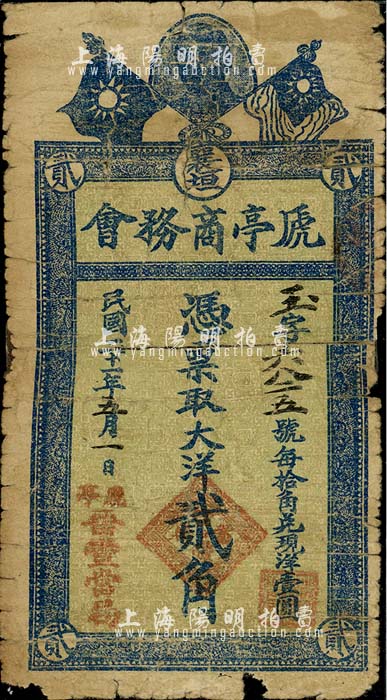 上海陽明拍賣
www.yangmingauction.com
襄垣
貳 貳
虒亭商務會
玉字六八一五號每拾角兌現洋壹圓
憑票取大洋貳角
民國廿二年五月一日
虒亭
上海陽明拍賣
www.yangmingauction.com
貳 貳
上海陽明拍賣
www.yangmingauction.com